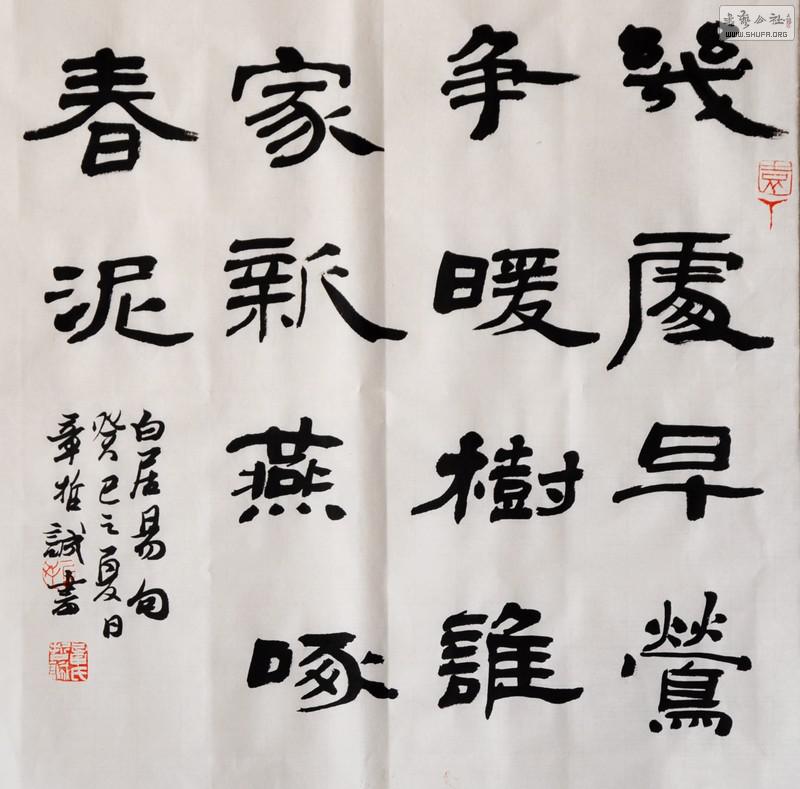 幾處早鶯
争暖樹誰
家新燕啄
春泥
白居易句
癸巳之夏日
章哲誠書
書藝公社
WWW.SHUFA.ORG